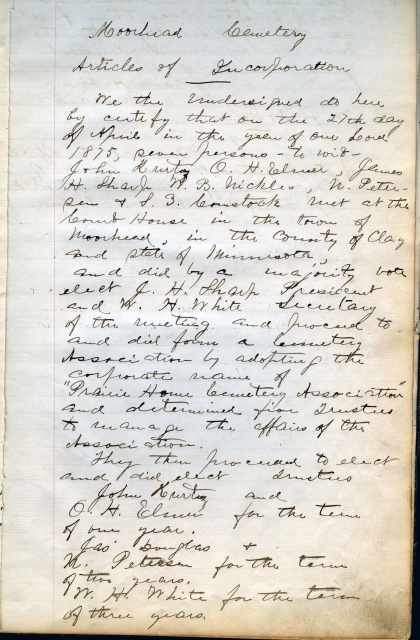 Moorhead Cemetery
Articles of Incorporation
We the Undersigned do here
by certify that on the 27th day
of April in the year of our Lord
1875, seven persons - to wit -
John Kurtz, O. H. Elmer, James
H. Sharp, W. B. Nickles, N. Peter-
sen & S. G. Comstock met at the
Court House in the town of
Moorhead, in the County of Clay
and state of Minnesota,
and did by a majority vote
elect J. H. Sharp President
and W. H. White Secretary
of the meeting and proceed to
and did form a Cemetery
Association by adopting the
corporate name of
"Prairie Home Cemetery Association"
and determined five Trustees
to manage the affairs of the
Association.
They then proceeded to elect
and did elect Trustees
John Kurtz and
O. H. Elmer for the term
of one year.
Jas Douglas &
N. Petersen for the term
of two years.
W. H. White for the term
of three years.